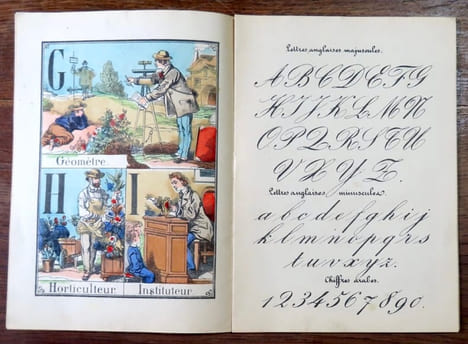 G
Géomètre
H
I
Horticulteur
Instituteur
Lettres anglaises majuscules.
A B C D E F G
H I J K L M N
O P Q R S T U
V X Y Z.
Lettres anglaises, minuscules.
a b c d e f g h i j
k l m n o p q r s
t u v x y z.
Chiffres arabes.
1 2 3 4 5 6 7 8 9 0.